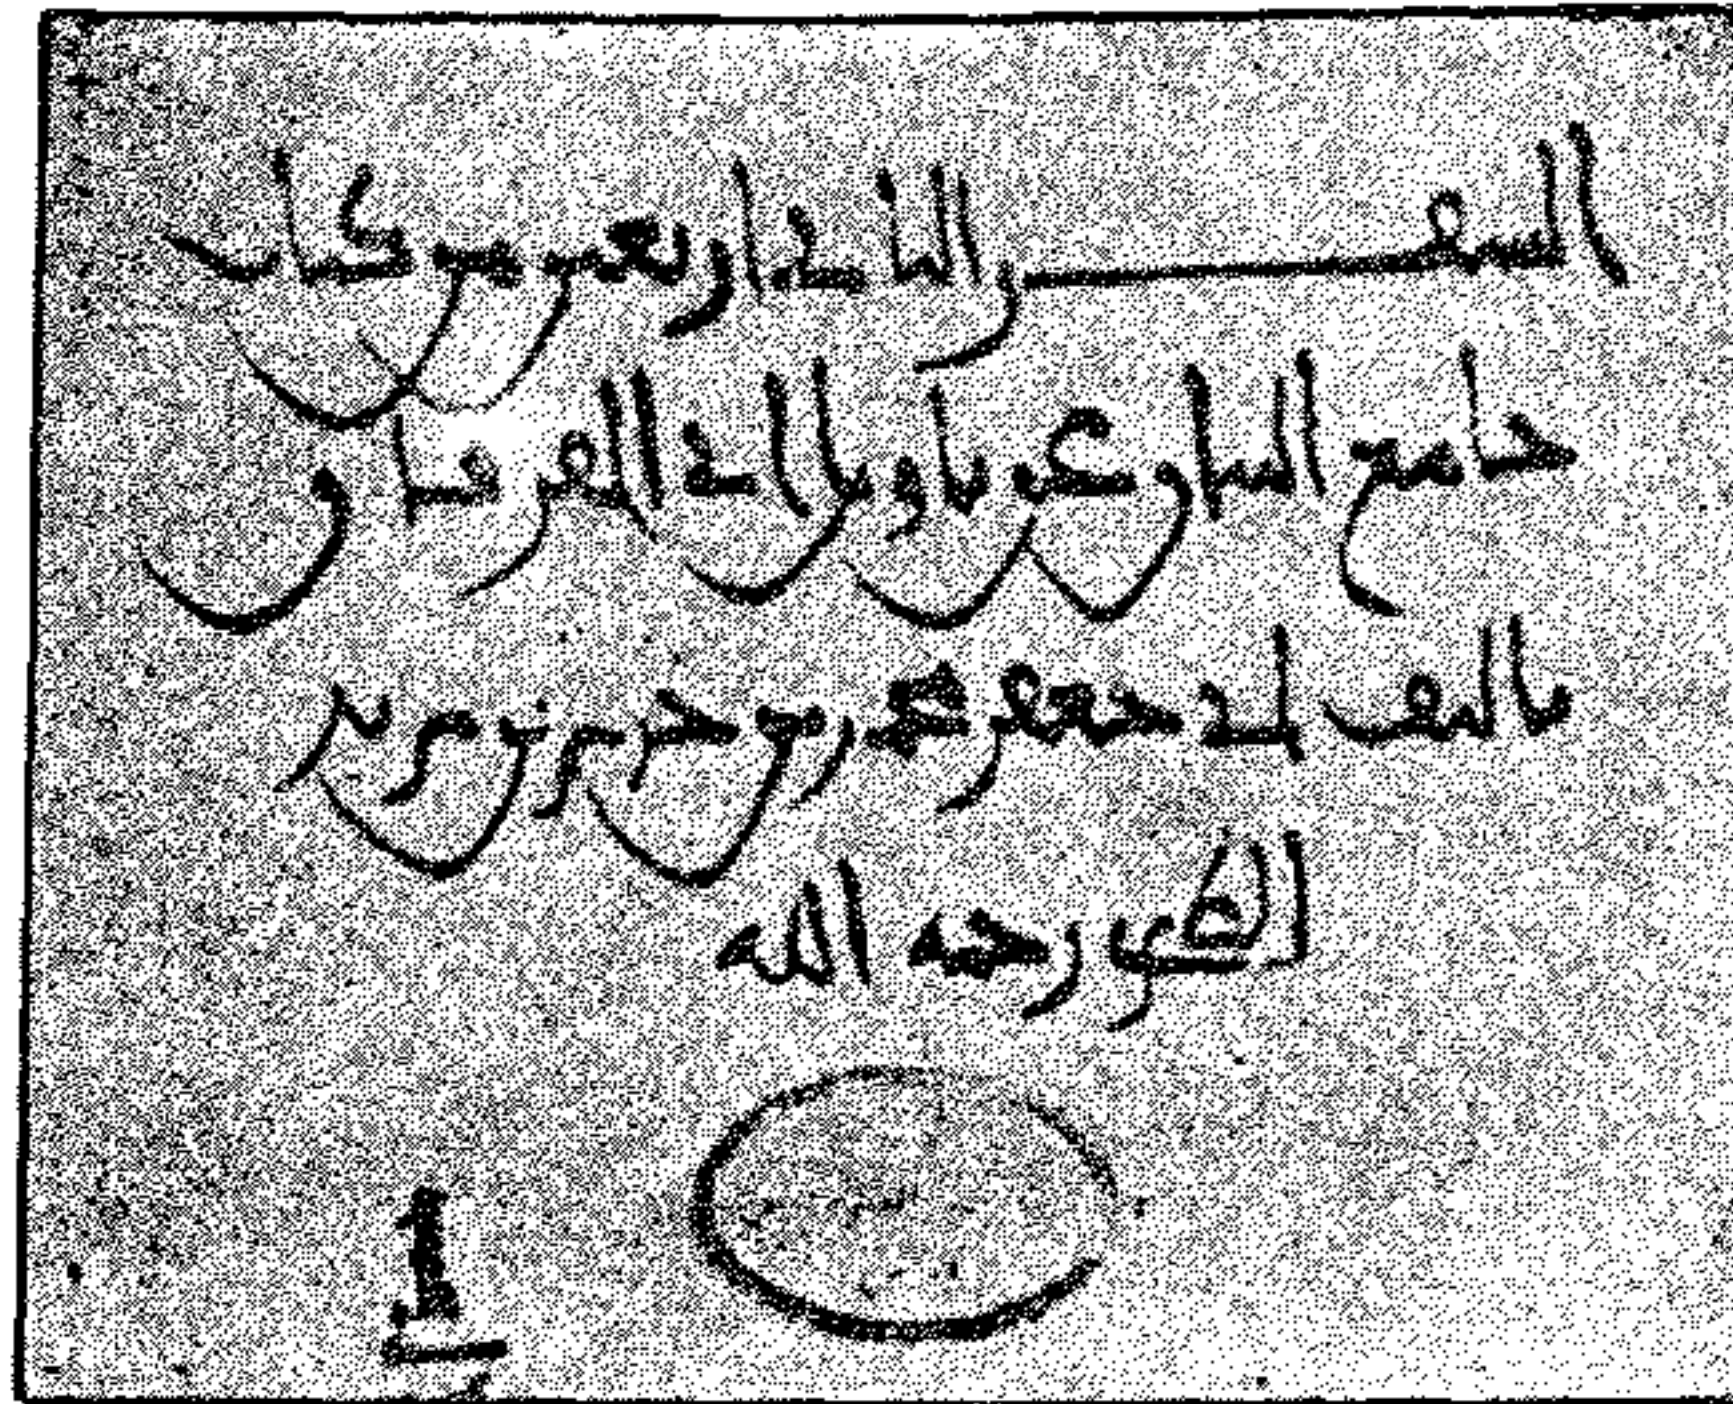 السفـــر الثاني اربعين من كتاب
جامع البيان عن تاويل اي الفرقان
تاليف ابي جعفر محمد بن جرير بن يزيد
الطبري رحمه الله